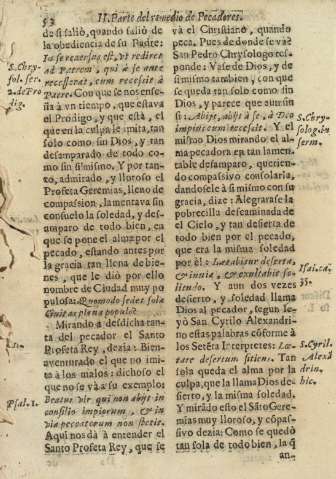 53
II. Parte del remedio de Pecadores.
de sì saliò, quando saliò de
la obediencia de su Padre:
Ia se reuersus est, vt rediret
ad Patrem, qui à se ante
recesserat, cum recessit à
Patre. Con que se nos ense-
ña à vn tiempo, que estava
el Prodigo, y que està, el
que en la culpa le imita, tan
solo como sin Dios, y tan
desamparado de todo como
sin si mismo. Y por tan-
to, admirado, y lloroso el
Profeta Geremias, lleno de
compassion, lamentava sin
consuelo la soledad, y des-
amparo de todo bien, en
que se pone el alma por el
pecado, estando antes por
la gracia tan llena de bie-
nes, que le diò por ello
nombre de Ciudad muy po
pulosa: Quomodo sedet sola
Civitas plena populo?
Mirando à desdicha tan-
ta del pecador el Santo
Profeta Rey, dezia: Bien-
aventurado el que no imi-
ta à los malos: dichoso el
que no se và à su exemplo:
Beatus vir qui non abijt in
consilio impiorum, & in
via peccatorum non stetit.
Aqui nos dà à entender el
Santo Profeta Rey, que se
S. Chry-
sol. ser.
2. de Pro
dig.
Psal. 1.
và el Christiano, quando
peca. Pues de donde se và?
San Pedro Chrysologo res-
ponde: Vase de Dios, y de
si mismo tambien, con que
se queda tan solo como sin
Dios, y parece que aun sin
si: Abijt, abijt à se, à Deo
impius cum recessit. Y el
mismo Dios mirando el al-
ma pecadora en tan lamen-
table desamparo, querien-
do compassivo consolarla,
dandosele à si mismo con su
gracia, dize: Alegrarase la
pobrecilla descaminada de
el Cielo, y tan desierta de
todo bien por el pecado,
que era la misma soledad
por èl: Lætabitur deserta,
& invia, & exultabit so-
litudo. Y aun dos vezes
desierto, y soledad llama
Dios al pecador, segun le-
yò San Cyrilo Alexandri-
no essas palabras cõforme à
los Setẽta Interpretes: Læ-
tare desertum sitiens. Tan
sola queda el alma por la
culpa, que la llama Dios de-
sierto, y la misma soledad.
Y mirãdo esto el Sãto Gere-
mias muy lloroso, y cõpas-
sivo dezia: Como se quedò
tan sola de todo bien, la q̃
an-
S. Chry-
solog. in
serm.
Isai. ca.
35.
S. Cyril.
Alexã
drin.
hic.